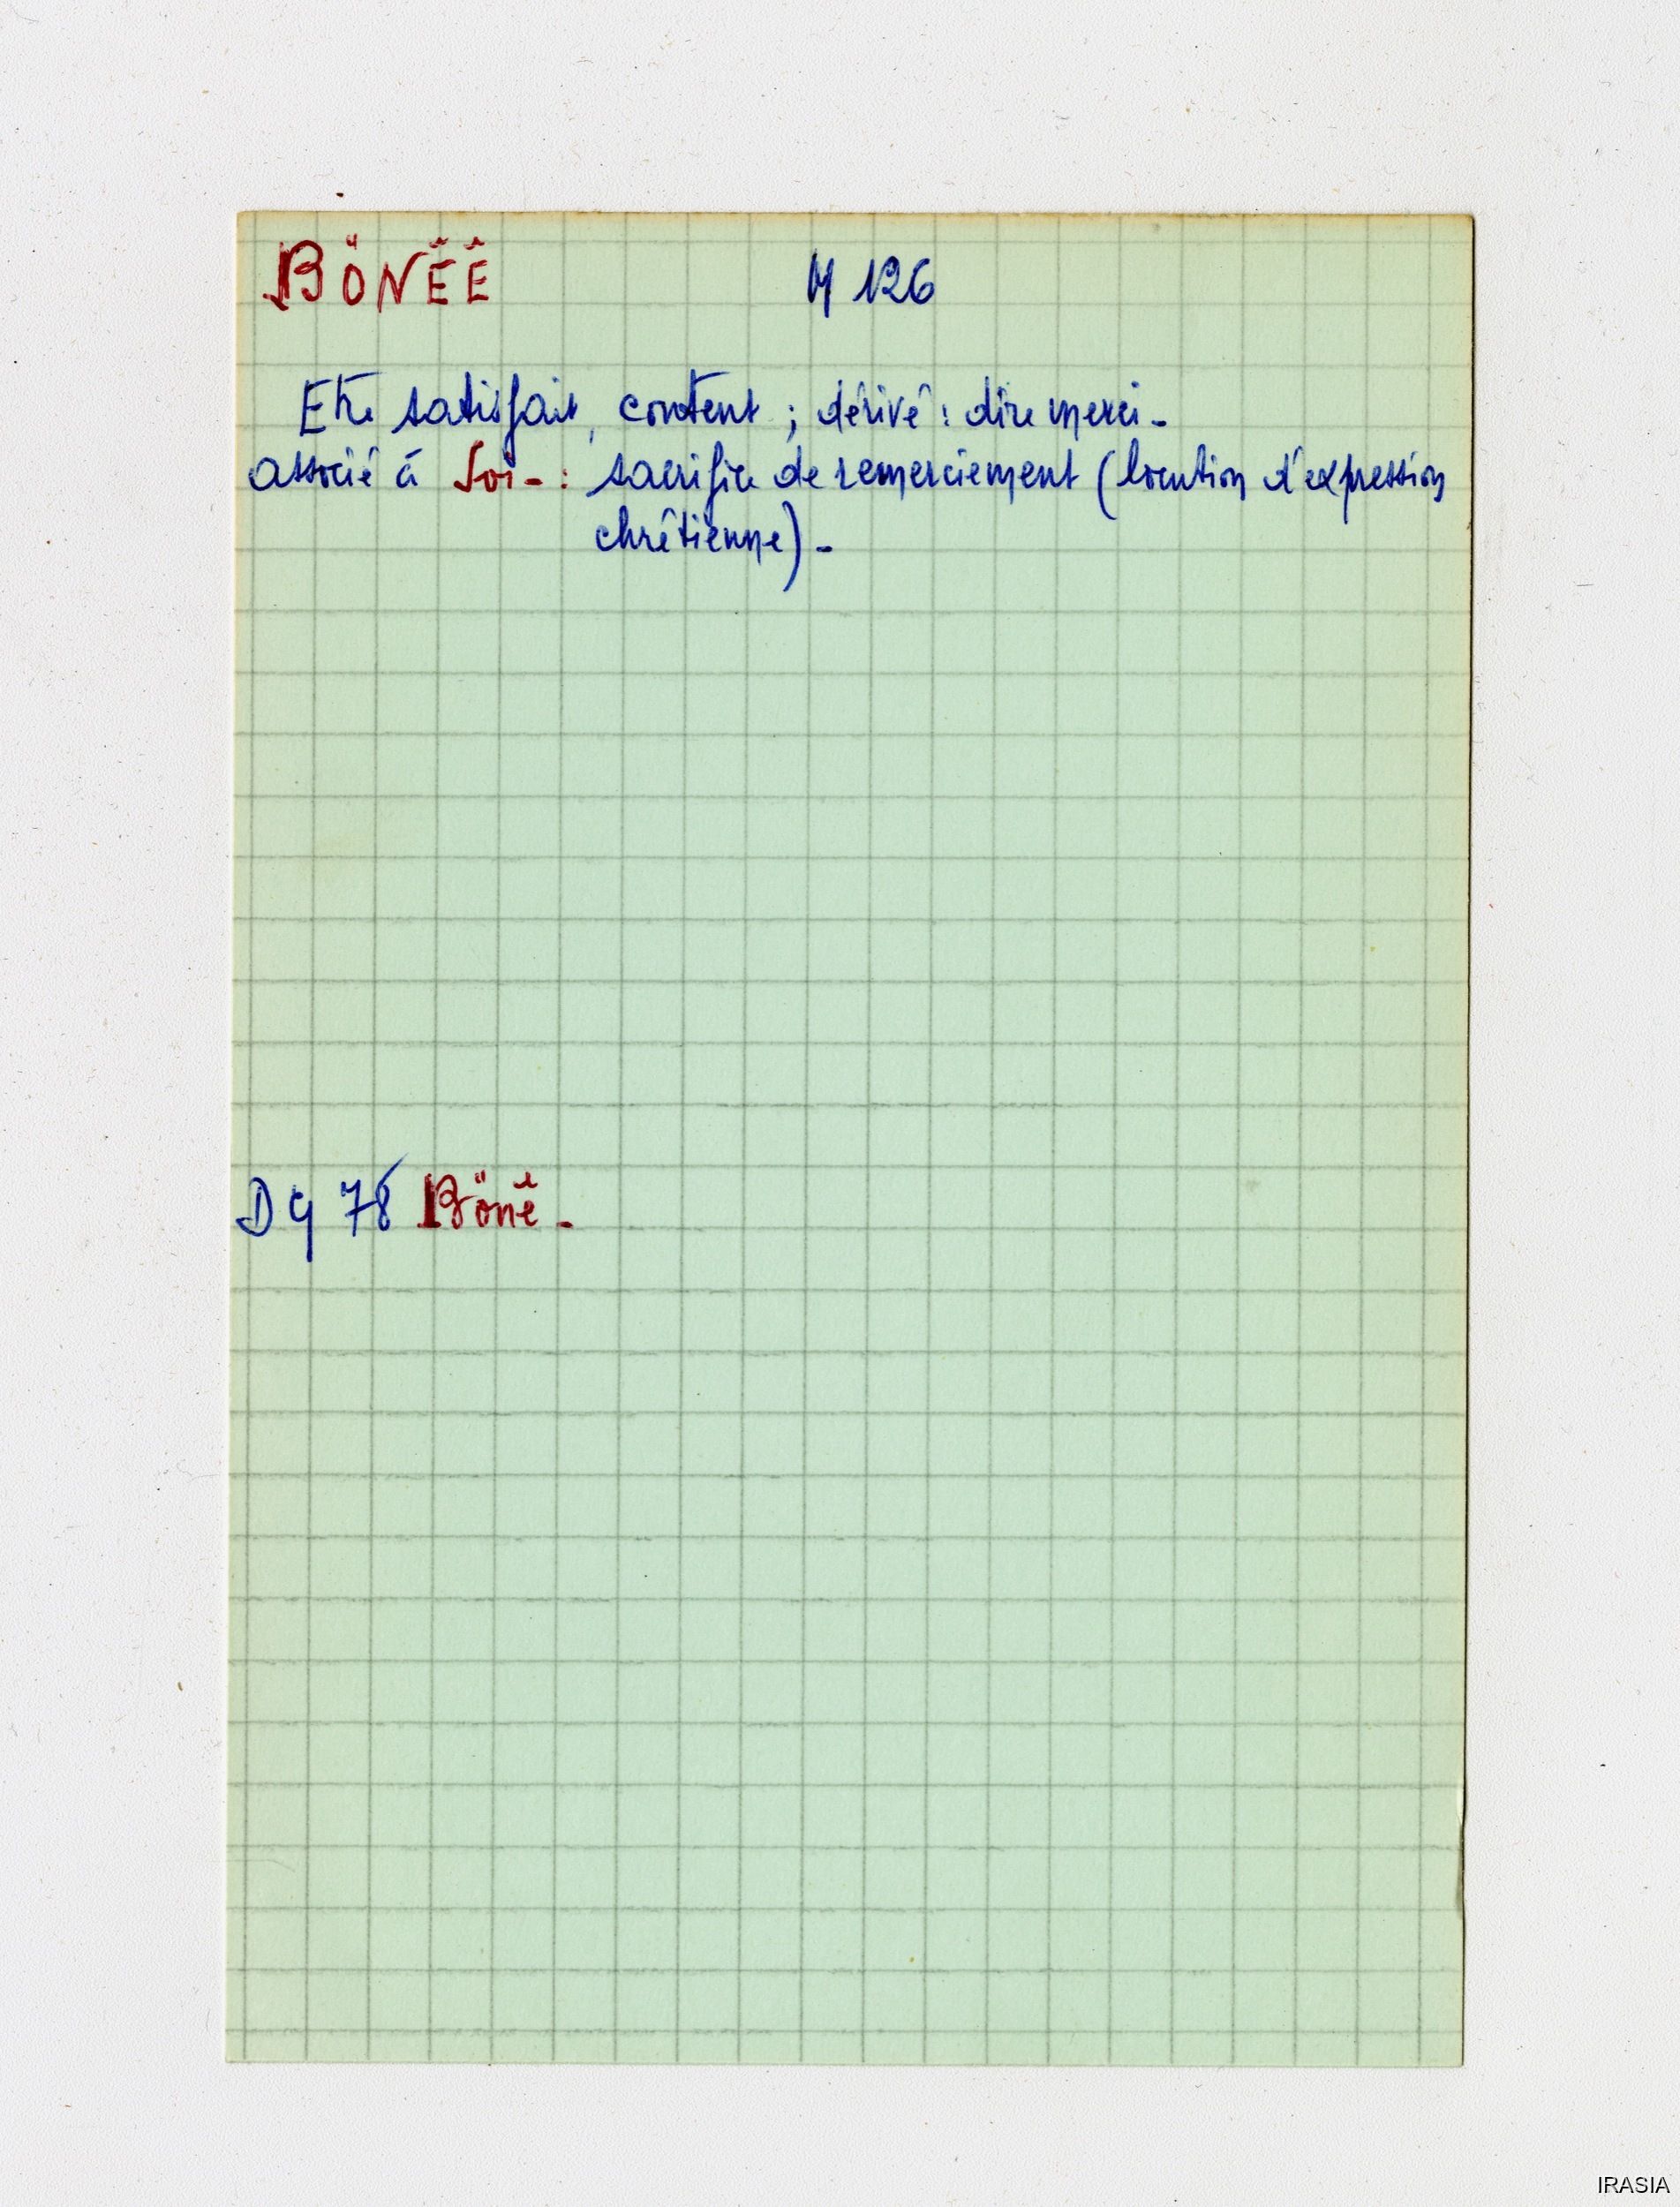 BÖNÊÊ M 126
Etre satisfait, content ; dérivé : dire merci -
associé à Soi - : sacrifice de remerciement (locution d'expression
chrêtienne) -
DG 78 Bönê -
IRASIA